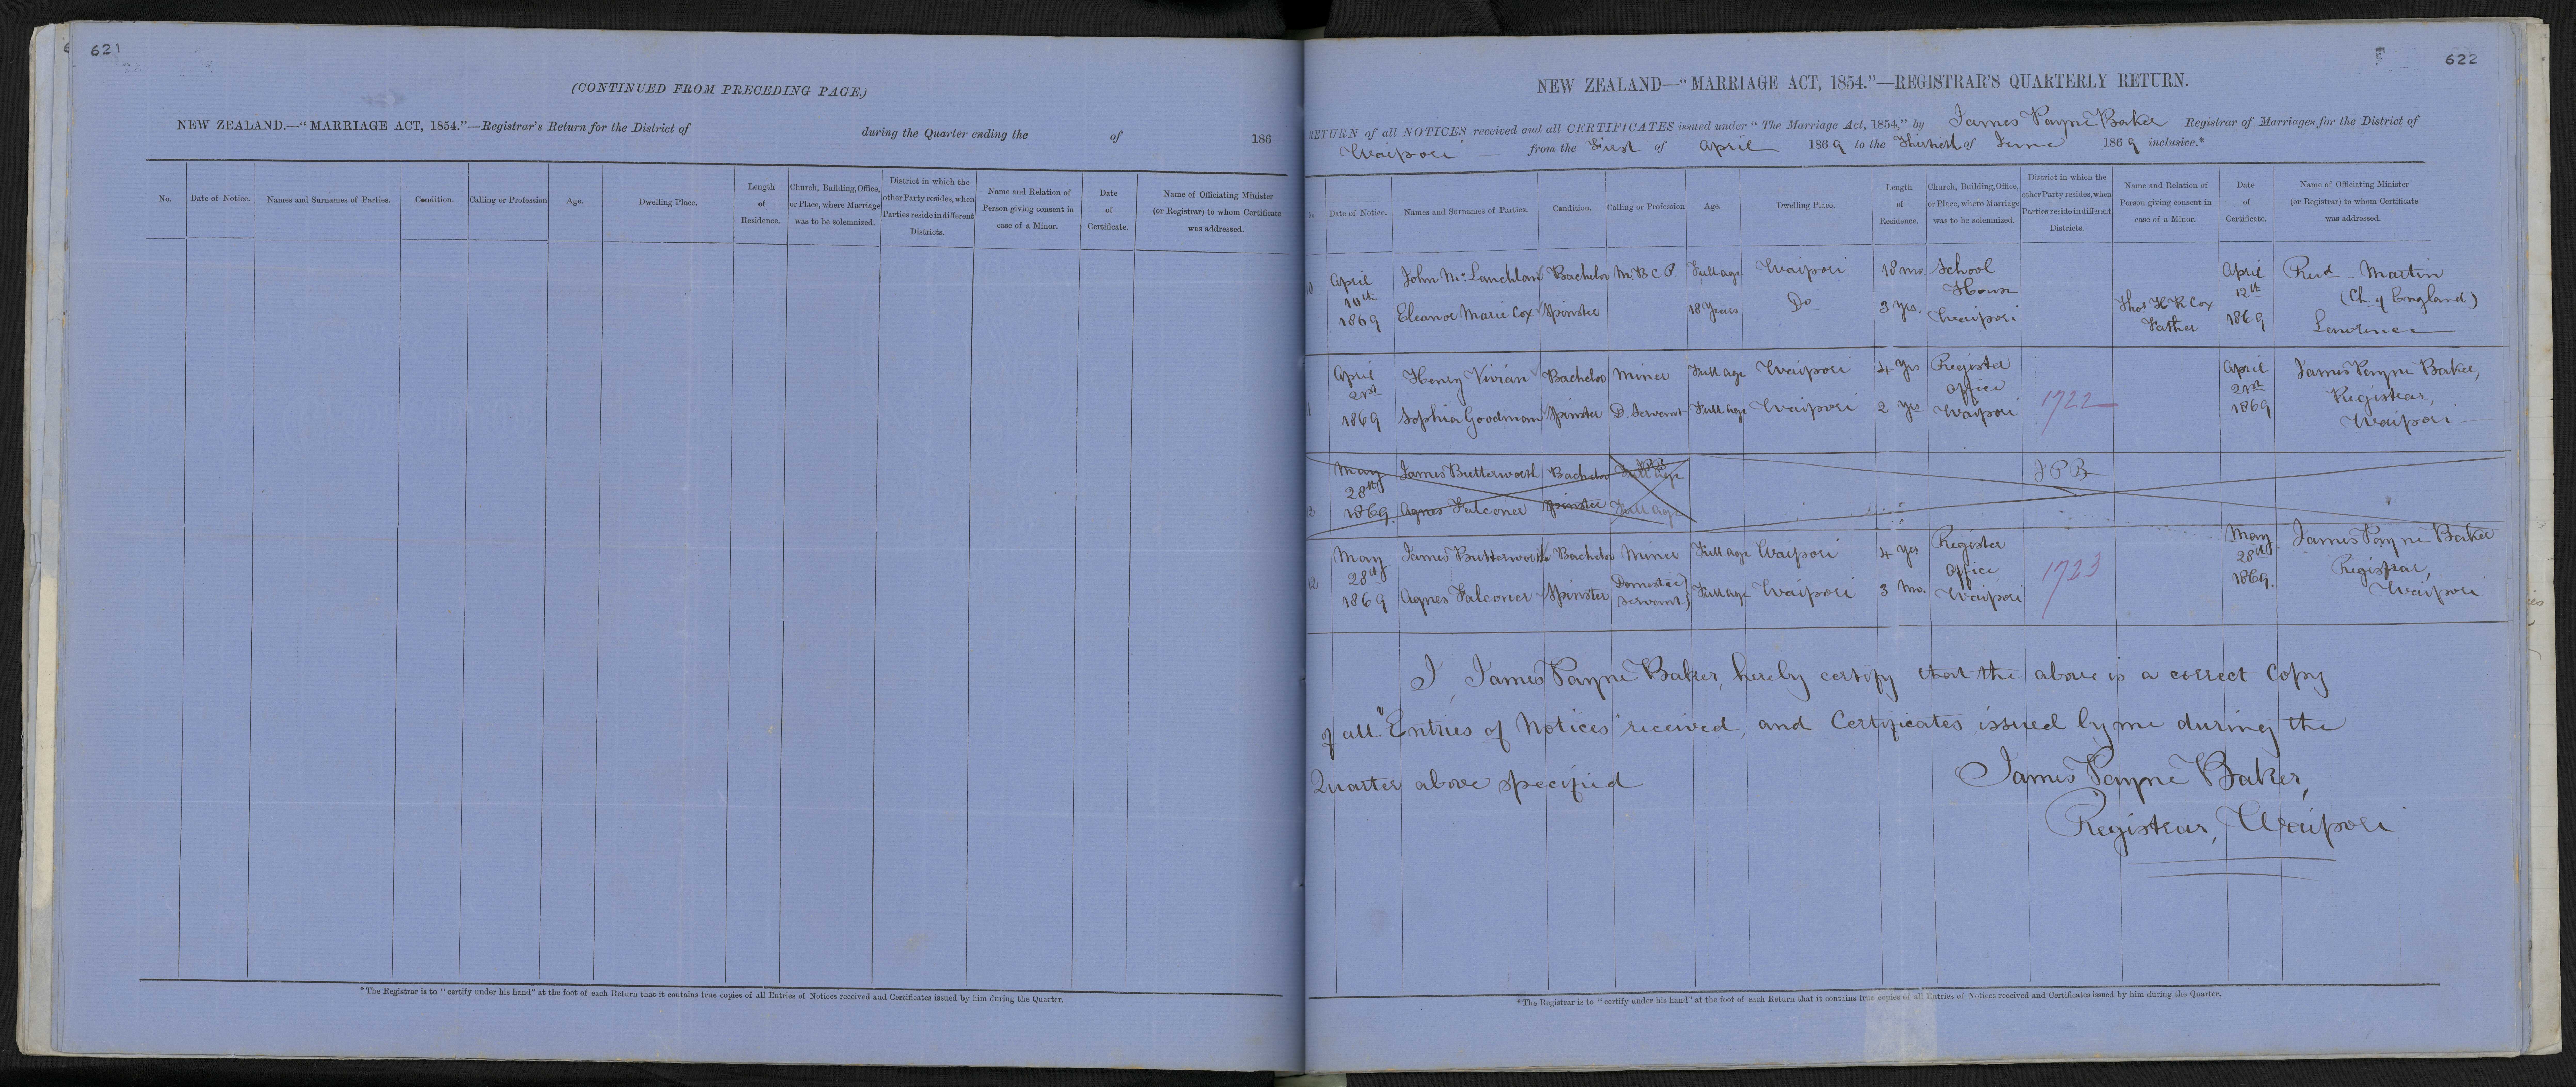 621
(CONTINUED FROM PRECEDING PAGE.)
NEW ZEALAND.—"MARRIAGE ACT, 1854."—Registrar's Return for the District of during the Quarter ending the of 186
No. Date of Notice. Names and Surnames of Parties. Condition. Calling or Profession Age. Dwelling Place. Length of Residence. Church, Building, Office, or Place, where Marriage was to be solemnized. District in which the other Party resides, when Parties reside in different Districts. Name and Relation of Person giving consent in case of a Minor. Date of Certificate. Name of Officiating Minister (or Registrar) to whom Certificate was addressed.
*The Registrar is to "certify under his hand" at the foot of each Return that it contains true copies of all Entries of Notices received and Certificates issued by him during the Quarter.
622
NEW ZEALAND—"MARRIAGE ACT, 1854."—REGISTRAR'S QUARTERLY RETURN.
RETURN of all NOTICES received and all CERTIFICATES issued under "The Marriage Act, 1854," by James Payne Baker Registrar of Marriages for the District of
Waipori from the First of April 1869 to the Thirtieth of June 1869 inclusive.*
No. Date of Notice. Names and Surnames of Parties. Condition. Calling or Profession Age. Dwelling Place. Length of Residence. Church, Building, Office, or Place, where Marriage was to be solemnized. District in which the other Party resides, when Parties reside in different Districts. Name and Relation of Person giving consent in case of a Minor. Date of Certificate. Name of Officiating Minister (or Registrar) to whom Certificate was addressed.
April John Mc Lauchlan Bachelor M.B.C.P. Full age Waipori 18 mo. School April Revd - Martin
10th House 12th (Ch. of England)
1869 Eleanor Marie Cox Spinster 18 Years Do 3 yrs. Waipori Thos H R Cox Father 1869 Lawrence
April Henry Vivian Bachelor Miner Full age Waipori 4 yrs Register April James Payne Baker,
21st office 21st Registrar,
1869 Sophia Goodman Spinster D. Servant Full age Waipori 2 yrs Waipori 1722 1869 Waipori
May James Butterworth Bachelor Full age JPB
28th JPB
1869. Agnes Falconer Spinster Full age
May James Butterworth Bachelor Miner Full age Waipori 4 yrs Register May James Payne Baker
28th office 28th Registrar,
12 1869 Agnes Falconer Spinster Domestic Servant Full age Waipori 3 mo. Waipori 1723 1869. Waipori
I, James Payne Baker, hereby certify that the above is a correct Copy
of all "Entries of Notices" received, and Certificates issued by me during the
Quarter above specified
James Payne Baker,
Registrar, Waipori
*The Registrar is to "certify under his hand" at the foot of each Return that it contains true copies of all Entries of Notices received and Certificates issued by him during the Quarter.